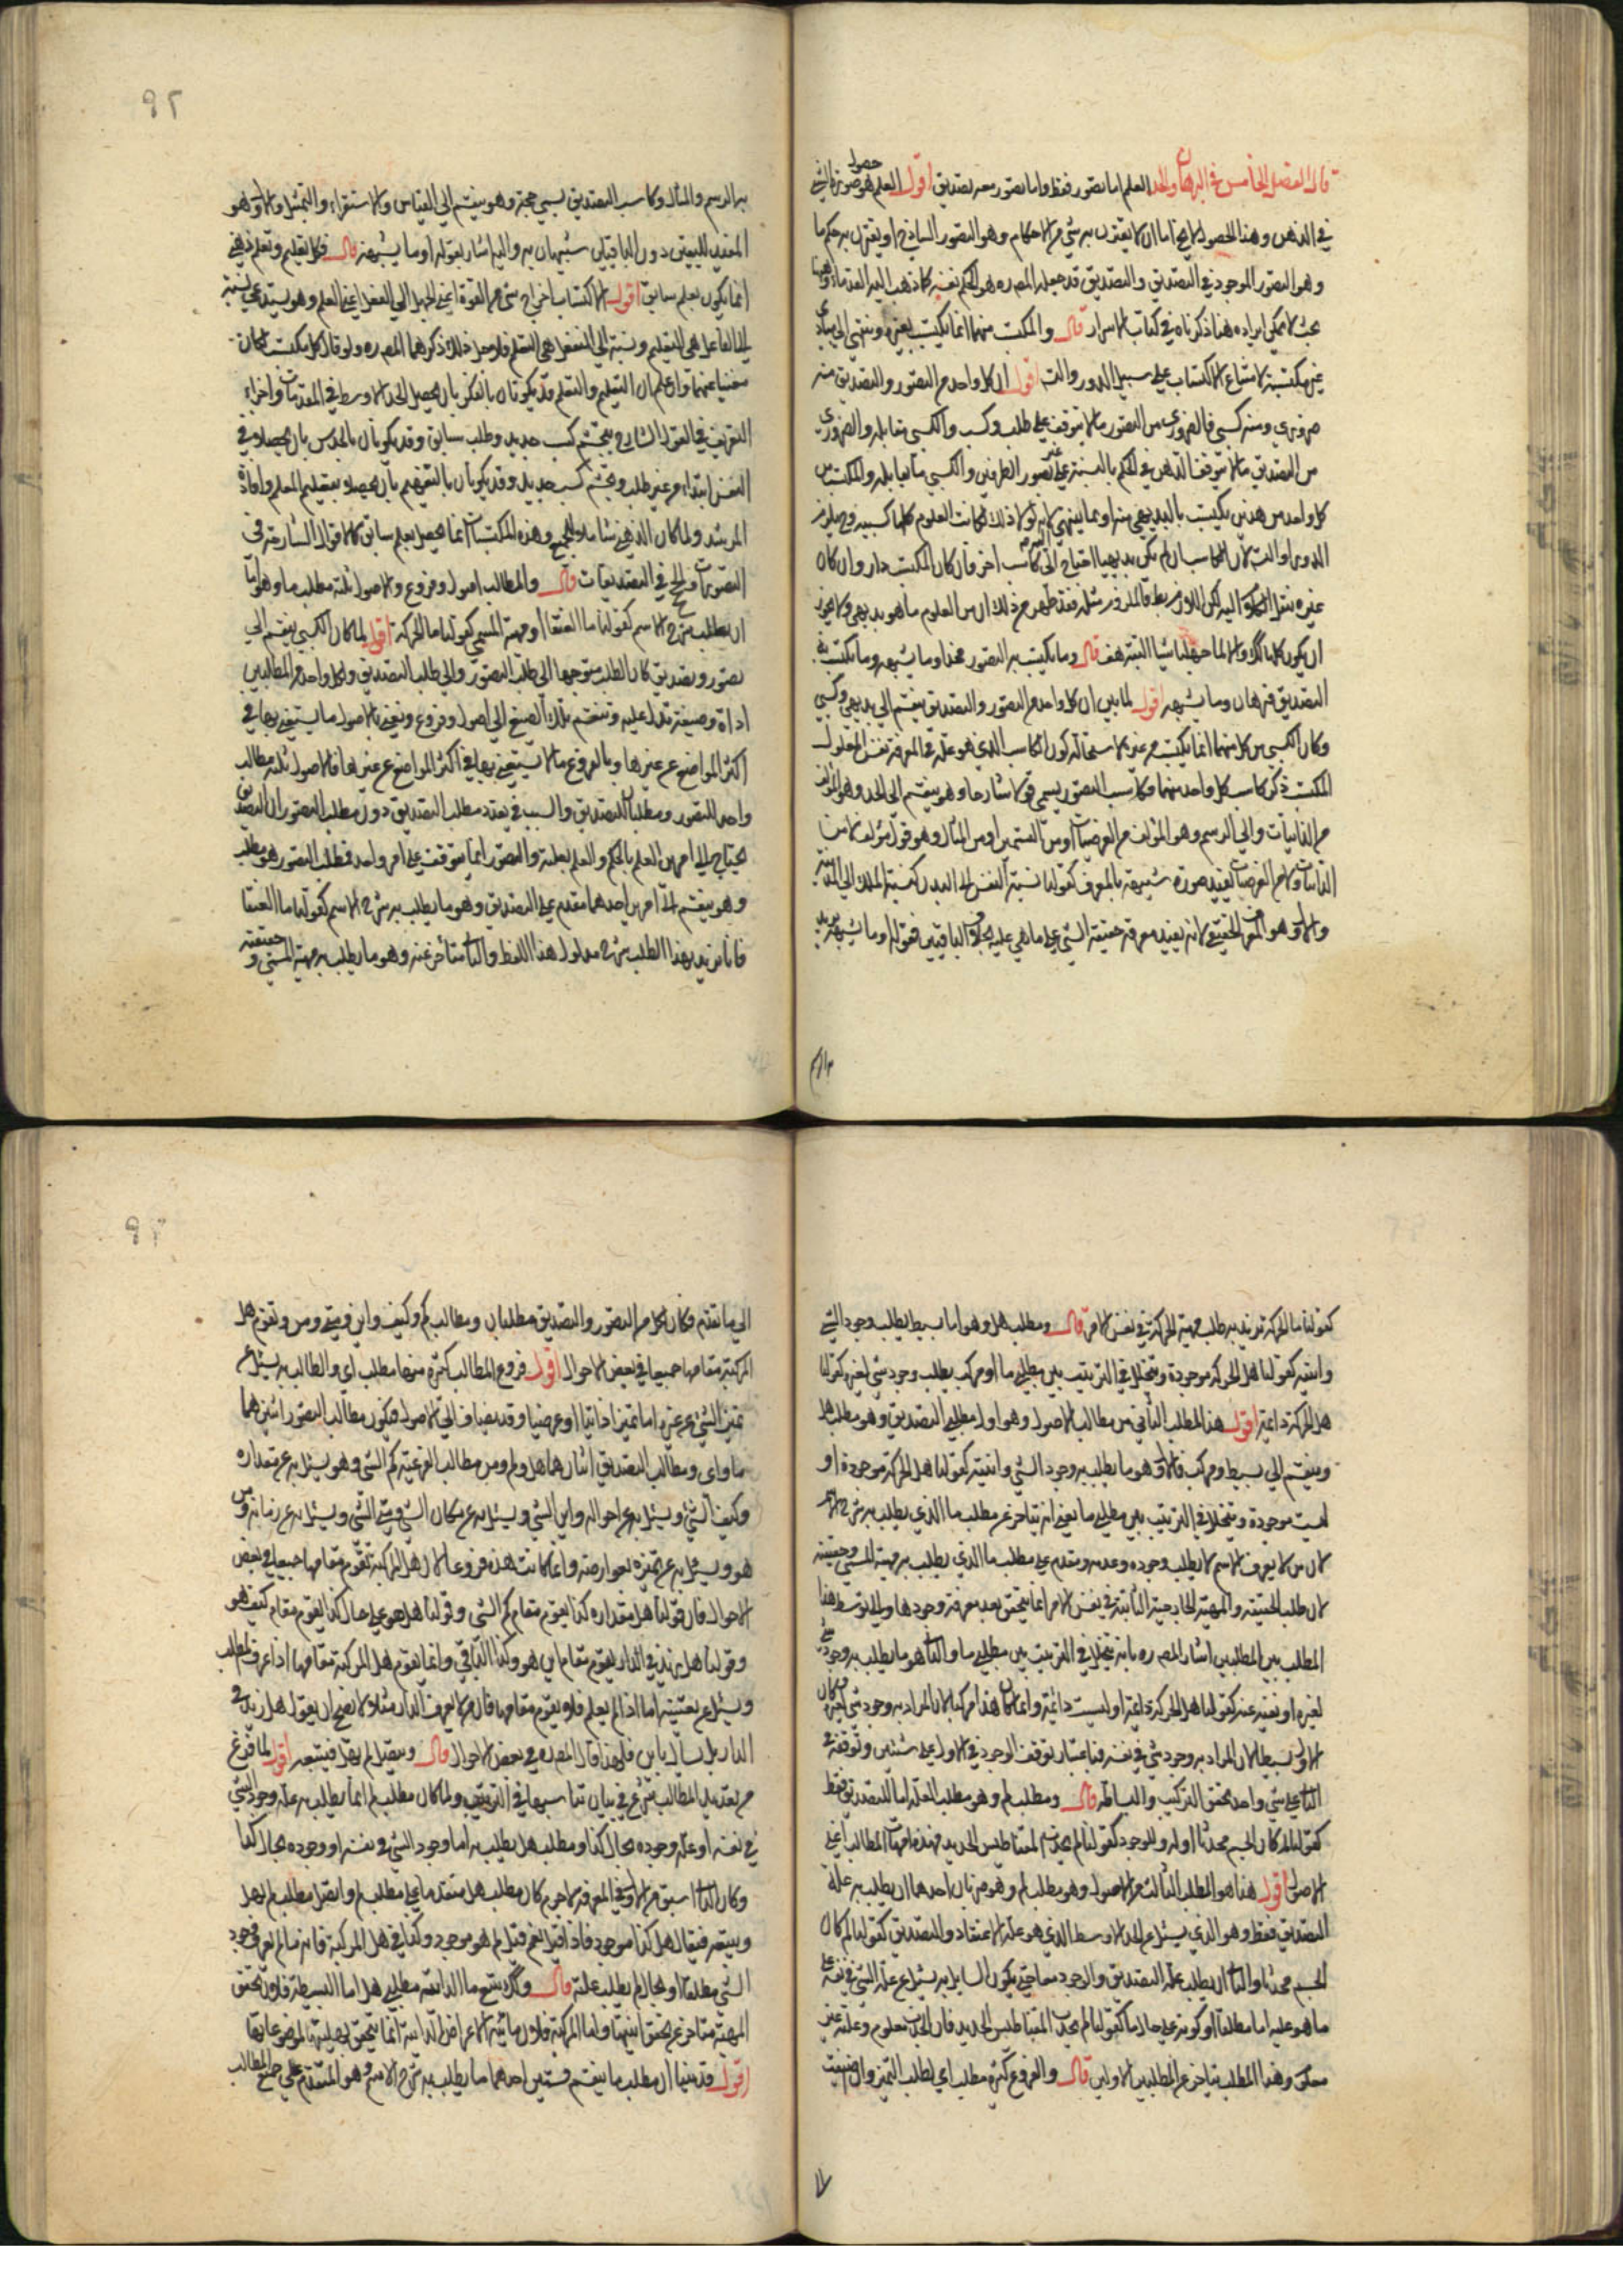 قال الفصل الخامس في البرهان والحد العلم اما تصور فقط واما تصور معه تصديق اقول العلم هو حصول صورة الشي
في الذهن وهذا الحصول لا يخ اما ان لا يقترن به شي من الاحكام وهو التصور الساذج او يقترن به حكم ما
وهو التصور الموجود في التصديق والتصديق قد جعله المصره هو الحكم نفسه كما ذهب اليه القدماء وههنا
بحث لا يمكن ايراده هنا ذكرناه في كتاب الاسرار قال والمكتسب منهما انما يكتسب بغيره وينتهي الى مبادي
غير مكتسبة لامتناع الاكتساب على سبيل الدور والتس اقول ان كل واحد من التصور والتصديق منه
ضروري ومنه كسبي فالضروري من التصور ما لا يتوقف على طلب وكسب والكسبي مقابله والضروري
من التصديق ما لا يتوقف الذهن في الحكم بالنسبة على غير تصور الطرفين والكسبي ما يقابله والمكتسب من
كل واحد من هذين يكتسب بالبديهي منه او بما ينتهي اليه لانه لولا ذلك لكانت العلوم كلها كسبية وحيلزم
الدور او التس لان الكاسب ان لم يكن بديهيا احتاج الى كاسب اخر فان كان المكتسب دار وان كان
غيره نقل الكلام اليه لكن اللازم بط فالملزوم مثله فقد ظهر من ذلك ان من العلوم ما هو بديهي ولا يجوز
ان يكون كلها كذلك والا لما جهلنا شيا البتة هف قال وما يكتسب به التصور فحد او ما يشبهه وما يكتسب به
التصديق فبرهان وما يشبهه اقول لما بين ان كل واحد من التصور والتصديق ينقسم الى بديهي وكسبي
وكان الكسبي من كل منهما انما يكتسب من غيره لاستحالة كون الكاسب الذي هو علة في المعرفة نفس المعلول
المكتسب ذكر كاسب كل واحد منهما فكاسب التصور يسمى قولا شارحا وهو ينقسم الى الحد وهو المؤلف
من الذاتيات والى الرسم وهو المؤلف من العرضيات او من القسمين او من المثال وهو قول مؤلف لا من
الذاتيات ولا من العرضيات يفيد صورة شبيهة بالمعرف كقولنا نسبة النفس الى البدن كنسبة الملك الى المدينة
والاول هو المعرف الحقيقي لانه يفيد معرفة حقيقة الشي على ما هي عليه بخلاف الباقيين فقوله او ما يشبهه يريد
به الرسم والمثال وكاسب التصديق يسمى حجة وهو ينقسم الى القياس والاستقراء والتمثيل والاول هو
المفيد لليقين دون الباقيين شبيهان به واليه اشار بقوله او ما يشبهه قال فكل تعليم وتعلم ذهني
انما يكون بعلم سابق اقول الاكتساب اخراج شي من القوة اعني الجهل الى الفعل اعني العلم وهو يستدعي نسبة
الى الفاعل هي التعليم ونسبة الى المنفعل هي التعلم فلاجل ذلك ذكرهما المصره ولو قال كل مكتسب لكان
مغنيا عنهما واعلم ان التعليم والتعلم قد يكونان بالفكر بان يحصل الحد الاوسط في المقدمات واجزاء
التعريف في القول الشارح بتجشم كسب جديد وطلب سابق وقد يكونان بالحدس بان يحصلا في
النفس ابتداء من غير طلب وتجشم كسب جديد وقد يكونان بالتفهيم بان يحصلا بتعليم المعلم وافادة
المرشد ولما كان الذهني شاملا للجميع وهذه المكتسبات انما يحصل بعلم سابق كالاقوال الشارحة في
التصورات والحجج في التصديقات قال والمطالب اصول وفروع والاصول ثلثة مطلب ما وهو اما
ان يطلب شرح الاسم كقولنا ما العنقا او مهية المسمى كقولنا ما الحركة اقول لما كان الكسبي ينقسم الى
تصور وتصديق كان الطلب متوجها الى طلب التصور والى طلب التصديق ولكل واحد من المطالبين
اداة وصيغة تدل عليه وتنقسم تلك الصيغ الى اصول وفروع ونعني بالاصول ما يستغنى بها في
اكثر المواضع عن غيرها وبالفروع ما لا يستغنى بها في اكثر المواضع عن غيرها فالاصول ثلثة مطالب
واحد للتصور ومطلبان للتصديق والسبب في تعدد مطلب التصديق دون مطلب التصور ان التصديق
يحتاج الى امرين العلم بالحكم والعلم بعلته والتصور انما يتوقف على امر واحد فمطلب التصور هو مطلب ما
وهو ينقسم الى امرين احدهما متقدم على التصديق وهو ما يطلب به شرح الاسم كقولنا ما العنقا
فانا نريد بهذا الطلب شرح مدلول هذا اللفظ والثاني متأخر عنه وهو ما يطلب به مهية المسمى وحقيقته
كقولنا ما الحركة نريد به طلب مهية الحركة في نفس الامر قال ومطلب هل وهو اما بسيط يطلب وجود الشي
وانيته كقولنا هل الحركة موجودة ويتخلل في الترتيب بين مطلبي ما او مركب يطلب وجود شي لغيره كقولنا
هل الحركة دائمة اقول هذا المطلب الثاني من مطالب الاصول وهو اول مطلبي التصديق وهو مطلب هل
وينقسم الى بسيط ومركب فالاول هو ما يطلب به وجود الشي وانيته كقولنا هل الحركة موجودة او
ليست موجودة ويتخلل في الترتيب بين مطلبي ما يعني انه يتاخر عن مطلب ما الذي يطلب به شرح الاسم
لان من لا يعرف الاسم لا يطلب وجوده وعدمه ومتقدم على مطلب ما الذي يطلب به مهية المسمى وحقيقته
لان طلب الحقيقة والمهية الخارجية الثابتة في نفس الامر انما يتحقق بعد معرفة وجودها والى توسط هذا
المطلب بين المطلبين اشار المصره بانه يتخلل في الترتيب بين مطلبي ما والثاني هو ما يطلب به وجود شي
لغيره او نفيه عنه كقولنا هل الحركة دائمة او ليست دائمة وانما كان هذا مركبا لان المراد به وجود شي لغيره وكان
الاول بسيطا لان المراد به وجود شي في نفسه فباعتبار توقف الوجود في الاول على شيئين وتوقفه في
الثاني على شي واحد يتحقق التركيب والبساطة قال ومطلب لم وهو مطلب العلة اما للتصديق فقط
كقولنا لم كان الجسم محدثا او له وللوجود كقولنا لم يجذب المغناطيس الحديد فهذه امهات المطالب اعني
الاصول اقول هذا هو المطلب الثالث من الاصول وهو مطلب لم وهو ضربان احدهما ان يطلب به علة
التصديق فقط وهو الذي يسئل عن الحد الاوسط الذي هو علة الاعتقاد والتصديق كقولنا لم كان
الجسم محدثا والثاني ان يطلب علة التصديق والوجود معا حتى يكون السايل به يسئل عن علة الشي في نفسه على
ما هو عليه اما مطلقا او كونه على حال ما كقولنا لم يجذب المغناطيس الحديد فان الجذب معلوم وعلته غير
معلومة وهذا المطلب يتاخر عن المطلبين الاولين قال والفروع كثيرة مطلب اي لطلب التميز وان ضيفت
الى ما تقدم فكان لكل من التصور والتصديق مطلبان ومطالب كم وكيف واين ومتى ومن وتقوم هل
المركبة مقامها جميعا في بعض الاحوال اقول فروع المطالب كثيرة منها مطلب اي والطالب به يسئل عن
تميز الشي عن غيره اما تميزا ذاتيا او عرضيا وقد يضاف الى الاصول فيكون مطالب التصور اثنين هما
ما واي ومطالب التصديق اثنان هما هل ولم ومن مطالب الفرعية كم الشي وهو يسئل به عن مقداره
وكيف الشي ويسئل به عن احواله واين الشي ويسئل به عن مكان الشي ومتى الشي ويسئل به عن زمانه ومن
هو ويسئل به عن تميزه بعوارضه وانما كانت هذه فروعا لان هل المركبة تقوم مقامها جميعا في بعض
الاحوال فان قولنا هل مقداره كذا يقوم مقام كم الشي وقولنا هل هو على حال كذا يقوم مقام كيف هو
وقولنا هل زيد في الدار يقوم مقام اين هو وكذا البواقي وانما يقوم هل المركبة مقامها اذا عرف المطلب
ويسئل عن تعينه اما اذا لم يعلم فلا يقوم مقامها فان من لا يعرف الدار مثلا لا يصح ان يقول هل زيد في
الدار بل يسأل باين فلهذا قال المصره في بعض الاحوال قال ويتصل لم بهل فيتبعه اقول لما فرغ
من تعديد المطالب شرع في بيان تناسبها في الترتيب ولما كان مطلب لم انما يطلب به علة وجود الشي
في نفسه او علة وجوده بحال كذا ومطلب هل يطلب به اما وجود الشي في نفسه او وجوده بحال كذا
وكان الثاني اسبق من الاول في المعرفة لا جرم كان مطلب هل متقدما على مطلب لم واتصل مطلب لم بهل
ويتبعه فيقال هل كذا موجود فاذا قيل نعم قيل لم هو موجود وكذا في هل المركبة فانه ما لم يعرف وجود
الشي مطلقا او بحال لم يطلب علته قال وكذلك يتبع ما الذاتية مطلبي هل اما البسيطة فلان تحقق
المهية متاخر عن تحقق انيتها واما المركبة فلان مائية الاعراض الذاتية انما يتحقق بهلية الموضوعات بها
اقول قد بينا ان مطلب ما ينقسم قسمين احدهما ما يطلب به شرح الاسم وهو المتقدم على جميع المطالب